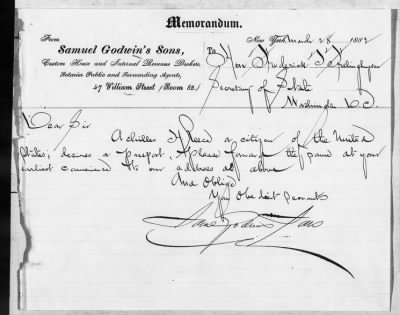 Memorandum.
New York, March 28 1882
From
Samuel Godwin's Sons,
Custom House and Internal Revenue Brokers,
Notaries Public and Forwarding Agents,
57 William Street (Room 82.)
To
Hon Frederick T Frelinghuysen
Secretary of State
Washington D C
Dear Sir
Achilles H a citizen of the United
States, desires a passport, please forward the same at your
earliest convenience to our address as above
And Oblige
Your Obedient Servants
Saml Godwins Sons